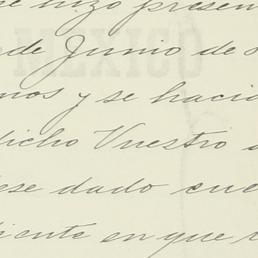 se hizo presen
de Junio de
mos y se haci
dicho Vuestro
ese dado cue
iente en que
MEXICO